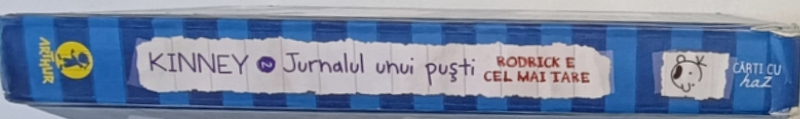 ARTHUR
KINNEY 2 Jurnalul unui puști
RODRICK E
CEL MAI TARE
CĂRȚI CU
haz